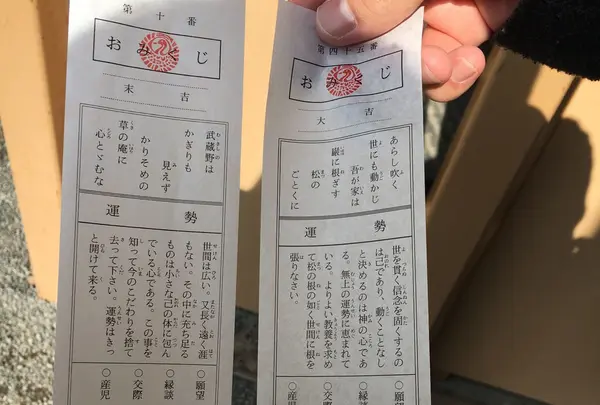 第十番
おみくじ
末吉
武蔵野は
かぎりも
見えず
かりそめの
草の庵に
心とゞむな
運勢
世間は広い。又長く遠く涯
もない。その中に充ち足る
ものは小さな己の体に包ん
でいる心である。この事を
知って今のこだわりを捨て
去って下さい。運勢はきっ
と開けて来る。
○願望
○縁談
○交際
○産児
第四十五番
おみくじ
大吉
あらし吹く
世にも動かじ
吾が家は
巌に根ざす
松の
ごとくに
運勢
世を貫く信念を固くするの
は己であり、動くことなし
と決めるのは神の心であ
る。無上の運勢に恵まれて
いる。よりよい教養を求め
て松の根の如く世間に根を
張りなさい。
○願望
○縁談
○交際
○産児